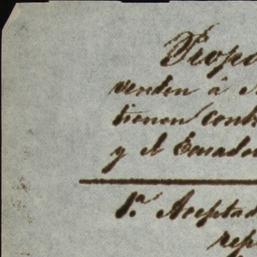 Propo
venden á
tienen cont
y el Ecuado
1.a Aceptad
rep